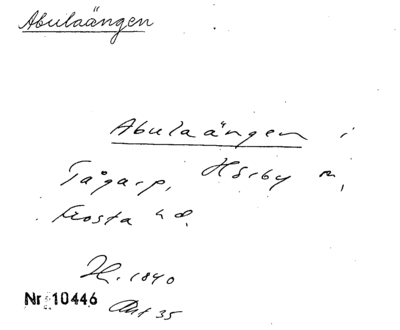 Abulaängen
Abulaängen i
Tågarp, Hörby sn,
Frosta hd.
H. 1840
Nr 10446 Akt 35